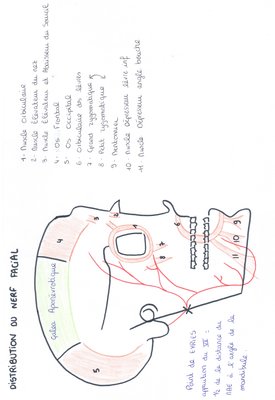 DISTRIBUTION DU NERF FACIAL
1 - Muscle Orbiculaire
2 - Muscle Elevateur du nez
3 - Muscle Elevateur et Abaisseur du Sourcil
4 - Os Frontal
5 - Os Occipital
6 - Orbiculaire des lèvres
7 - Grand zygomatique
8 - Petit zygomatique
9 - Mentonnier
10 - Muscle dépresseur lèvre inf
11 - Muscle depresseur angle bouche
Galea Aponévrotique
1
2
3
4
5
6
7
8
9
10
11
Point de
du VII :
1/2 de la distance du
à l'angle de la
mandibule